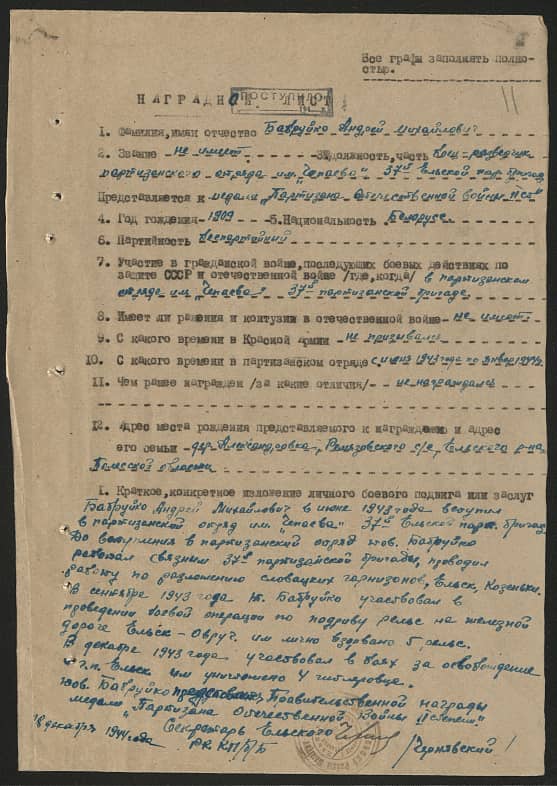 Все графы заполнять полно-
стью.
ПОСТУПИЛО
НАГРАДНОЙ ЛИСТ
11
1. Фамилия, имя отчество Бабруйко Андрей Михайлович
2. Звание не имеет 3. Должность, часть боец-разведчик
партизанского отряда им. "Чепаева" 37й Ельской пар. бригад.
Представляется к медали "Партизана Отечественной войны II ст"
4. Год рождения- 1909 -5. Национальность Белорусс
6. Партийность беспартийный
7. Участие в гражданской войне, последующих боевых действиях по
защите СССР и отечественной войне /где, когда/ в партизанском
отряде им "Чепаева" 37й партизанской бригаде
8. Имеет ли ранения и контузии в отечественной войне- не имеет
9. С какого времени в Красной Армии- не призывался
10. С какого времени в партизанском отряде с июня 1943 года по январь 1944
11. Чем ранее награжден /за какие отличия/- не награждался
12. Адрес места рождения представляемого к награждению и адрес
его семьи- дер. Александровка, Ремезовского с/с, Ельского р-на
Полесской области
I. Краткое, конкретное изложение личного боевого подвига или заслуг
Бабруйко Андрей Михайлович в июне 1943 года вступил
в партизанский отряд им. "Чепаева" 37й Ельской парт. бригад.
До вступления в партизанский отряд тов. Бабруйко
работал связным 37й партизанской бригады, проводил
работу по разложению словацких гарнизонов, Ельск, Козеньки.
В сентябре 1943 года т. Бабруйко участвовал в
проведении боевой операции по подрыву рельс на железной
дороге Ельск - Овруч. им лично взорвано 5 рельс.
В декабре 1943 года участвовал в боях за освобождение
г.п. Ельск им уничтожено 4 гитлеровце.
тов. Бабруйко Правительственной награды
медали "Партизана Отечественной Войны II степени"
Секретарь Ельского
РК КП/б/Б /Чернявский/
18 декабря 1944 года